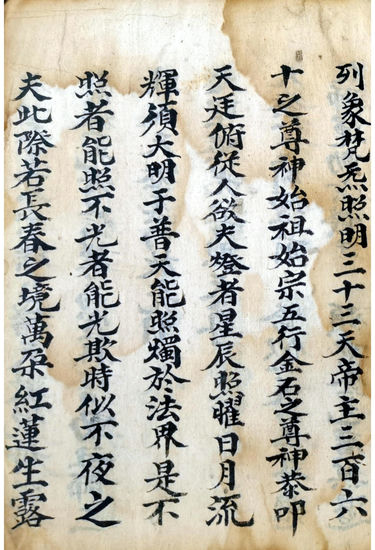 列象梵炁照明三十三天帝主三百六
十之尊神始祖始宗五行金石之尊神恭叩
天廷俯從人欲夫燈者星辰照曜日月流
輝須大明于普天能照燭於法界是不
照者能照不光者能光欺時似不夜之
夫此際若長春之境萬朶紅蓮生露